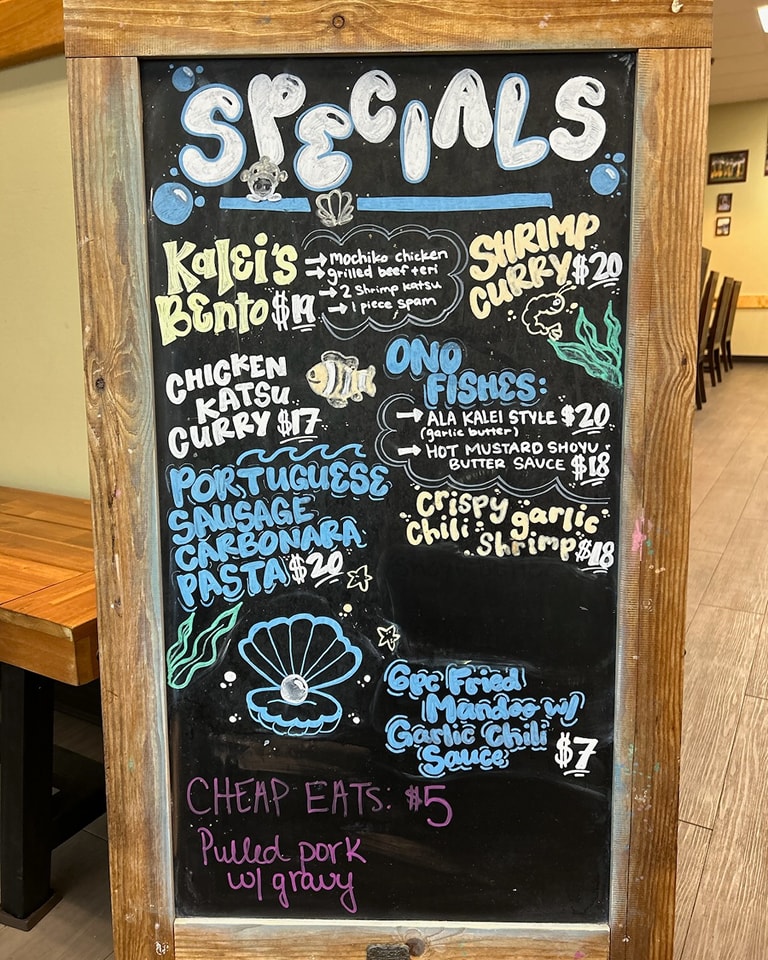 SPECIALS
Kalei's
Bento $19
→ mochiko chicken
→ grilled beef teri
→ 2 Shrimp katsu
→ 1 piece spam
SHRIMP
CURRY $20
CHICKEN
KATSU
CURRY $17
ONO
FISHES:
→ ALA KALEI STYLE $20
(garlic butter)
→ HOT MUSTARD SHOYU
BUTTER SAUCE $18
PORTUGUESE
SAUSAGE
CARBONARA
PASTA $20
Crispy garlic
Chili Shrimp $18
6pc Fried
Mandoo w/
Garlic Chili
Sauce $7
CHEAP EATS: $5
Pulled pork
w/ gravy